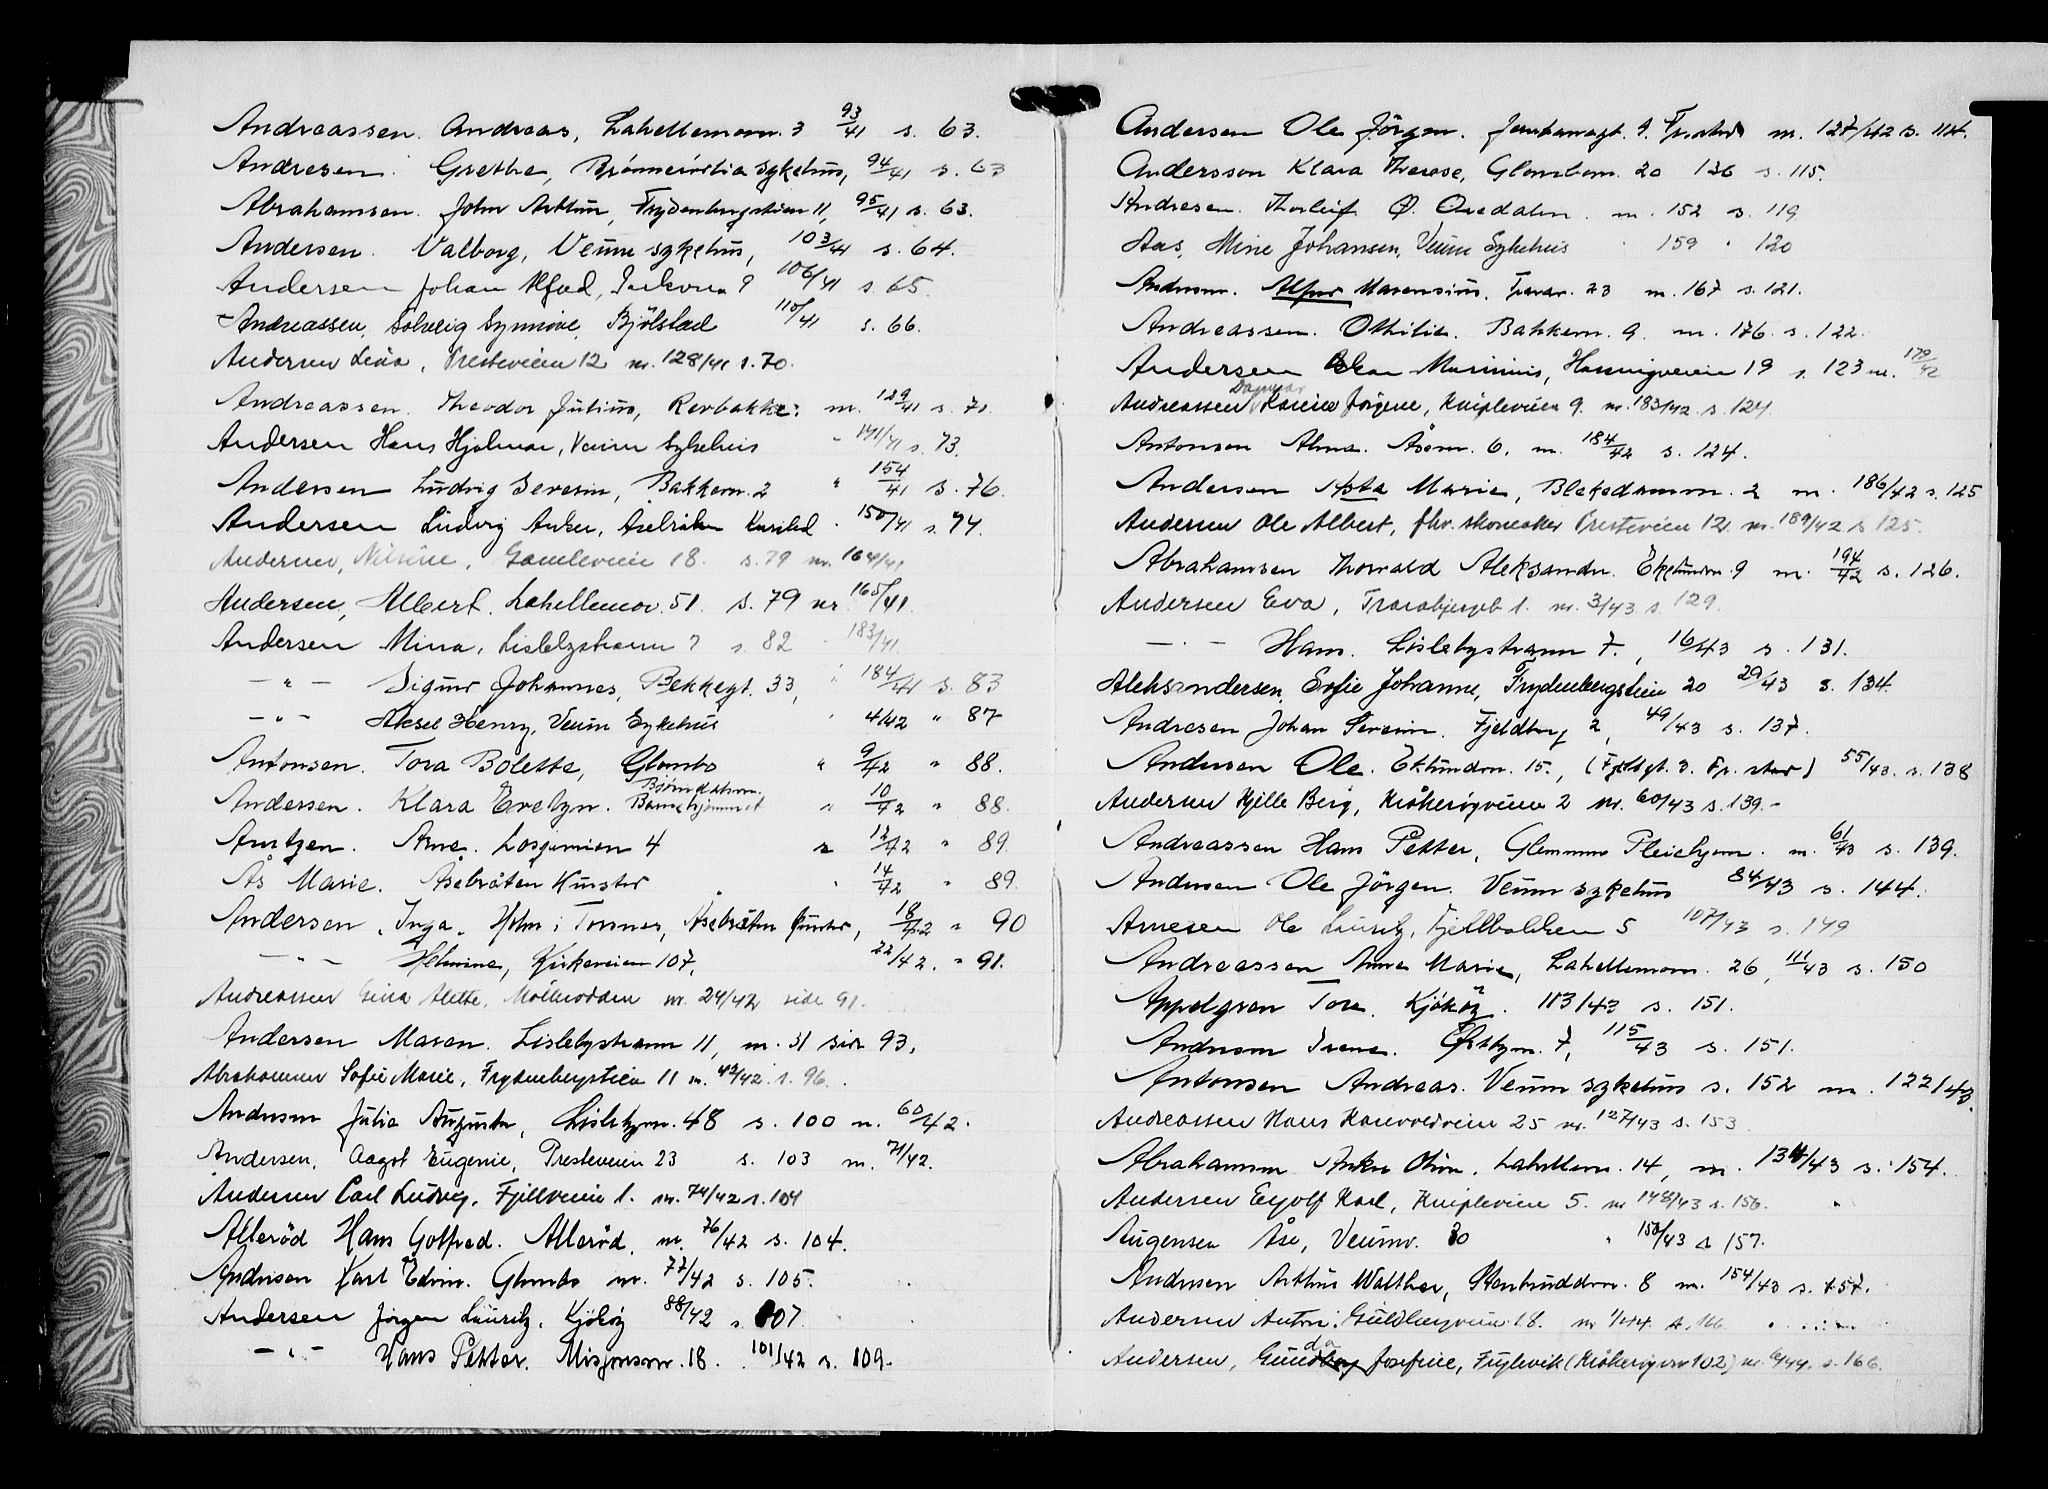 Andreassen. Andreas, Lahellemovn. 3 93/41 s. 63.
Andresen. Grethe, sykehus, 94/41 s. 63
Abrahamsen. John Arthur, Frydenbergstien 11, 95/41 s. 63.
Andersen. Valborg, Veum sykehus, 103/41 s. 64.
Andersen Johan Alfred, 9 106/41 s. 65.
Andreassen, Solveig Synnöve, Bjölstad 110/41 s. 66.
Andersen Lena, Presteveien 12 nr. 128/41 s. 70.
Andreassen. Theodor Julius, Rørbakke. nr. 129/41 s. 71
Andersen Hans Hjalmar, Veum Sykehus " 141/41 s. 73.
Andersen Ludvig Severin, Bakkevn. 2 " 154/41 s. 76.
Andersen Ludvig Anker, Åsebråten Kursted 150/41 s. 74.
Andersen, Nilsine, Gamleveien 18. s. 79 nr. 164/41
Andersen, Albert. Lahellemov. 51. s. 79 nr 165/41.
Andersen Mina, Lislebystrann 7 s. 82 183/41.
— " — Sigurd Johannes, Bekkegt. 33, " 184/41 s. 83
— " — Aksel Henry, Veum Sykehus 4/42 " 87
Antonsen. Tora Bolette, Glombo " 9/42 " 88.
Andersen. Klara Evelyn. Bjørndalen. Barnehjemmet " 10/42 " 88.
Arntzen. Arne. 4 " 12/42 " 89
Ås Marie. Åsebråten Kursted " 14/42 " 89.
Andersen, Inga, Holm i Torsnes, Åsebråten Kursted, 18/42 " 90
— " — Helmine, Kirkeveien 107, 22/42. " 91.
Andreassen Gina Alette, Mölleodden nr. 24/42 side 91.
Andersen Maren. Lislebystrann 11, nr. 31 side 93,
Abrahamsen Sofie Marie, Frydenbergstien 11 nr. 43/42 s. 96.
Andersen Julie Augusta, Lislebyvn. 48 s. 100 nr. 60/42.
Andersen, Aagot Eugenie, Presteveien 23 s. 103 nr. 71/42.
Andersen Carl Ludvig, Fjellveien 1. nr. 74/42 s. 104
Alleröd Hans Gotfred. Alleröd, nr. 76/42 s. 104.
Andersen Karl Edvin. Glombo nr. 77/42 s. 105.
Andersen Jörgen Lauritz, Kjököy 88/42 s. 107.
— " — Hans Petter. Misjonsvn. 18. 101/42 s. 109.
Andersen Ole Jörgen. 9. Fr.stad nr. 127/42 s. 114.
Andersson Klara Therese, Glombovn. 20 136 s. 115.
Andresen. Thorleif Ø. Oredalen. nr. 152 s. 119
Aas, Mine Johansen, Veum Sykehus 159 " 120
Andersen. Alfred Marensius. Traravn. 23 nr. 167 s. 121.
Andreassen. Othilie. Bakkevn. 9. nr. 176. s. 122.
Andersen Marinius, Hassingveien 19 s. 123 nr. 179/42
Andreassen Dagmar Karine Jörgine, Knipleveien 9. nr. 183/42 s. 124.
Antonsen Alma. Åsevn. 6. nr. 184/42 s. 124.
Andersen Asta Marie, Bleksdammen. 2 nr. 186/42 s. 125
Andersen Ole Albert, fhv. skomaker Presteveien 12. nr. 189/42 s 125.
Abrahamsen Thorvald Aleksander. Ekelundvn. 9 nr. 194/42 s. 126.
Andersen Eva, Trarabjergbt 1. nr. 3/43 s. 129.
— " — Hans. Lislebystrann 7. 16/43 s. 131.
Aleksandersen, Sofie Johanne, Frydenbergstien 20 29/43 s. 134.
Andresen Johan Severin. Fjeldberg 2, 49/43 s. 137.
Andersen Ole. Eklundvn. 15., (Fjellbgt. 3. Fr. stad) 55/43. s. 138
Andersen Hjelle Berg, Kråkerøyveien 2 nr. 60/43 s. 139.-
Andreassen Hans Petter, Glemmen Pleiehjem. nr. 61/43 s. 139.
Andersen Ole Jörgen. Veum sykehus 84/43 s. 144.
Arnesen Ole Lauritz, Fjellbakken 5 107/43 s. 149
Andreassen Anne Marie, Lahellemovn. 26, 111/43 s. 150
Appelgren Tore. Kjököy. 113/43 s. 151.
Andersen Irene. Östbyvn. 7, 115/43 s. 151.
Antonsen Andreas. Veum sykehus s. 152 nr. 122/43.
Andreassen Hans Hauvoldveien 25 nr. 127/43 s. 153
Abrahamsen Anker Othar. Lahellem. 14, nr. 134/43 s. 154.
Andersen Eyolf Karl, Kniplevien 5. nr 148/43 s. 156.
Augensen Åse, Veumv. 30 " 150/43 s 157.
Andersen Arthur Walther, Stenbruddvn. 8 nr. 154/43 s. 157.
Andersen Anton. Guldbergveien 18. nr 1/44. s. 166
Andersen, Gunda Josefine, Fuglevik (Kråkerøyvn 102) nr. 6/44. s. 166.